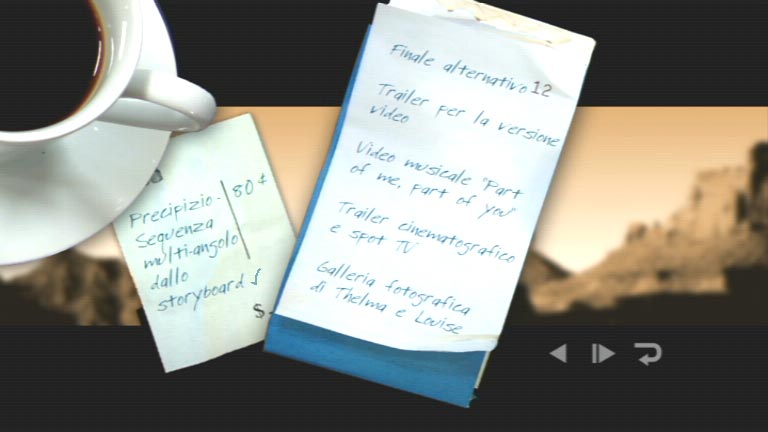 Finale alternativo 12
Trailer per la versione
video
Video musicale "Part
of me, part of you"
Trailer cinematografico
e spot TV
Galleria fotografica
di Thelma e Louise
Precipizio - 80 ¢
Sequenza
multi-angolo
dallo
storyboard
$